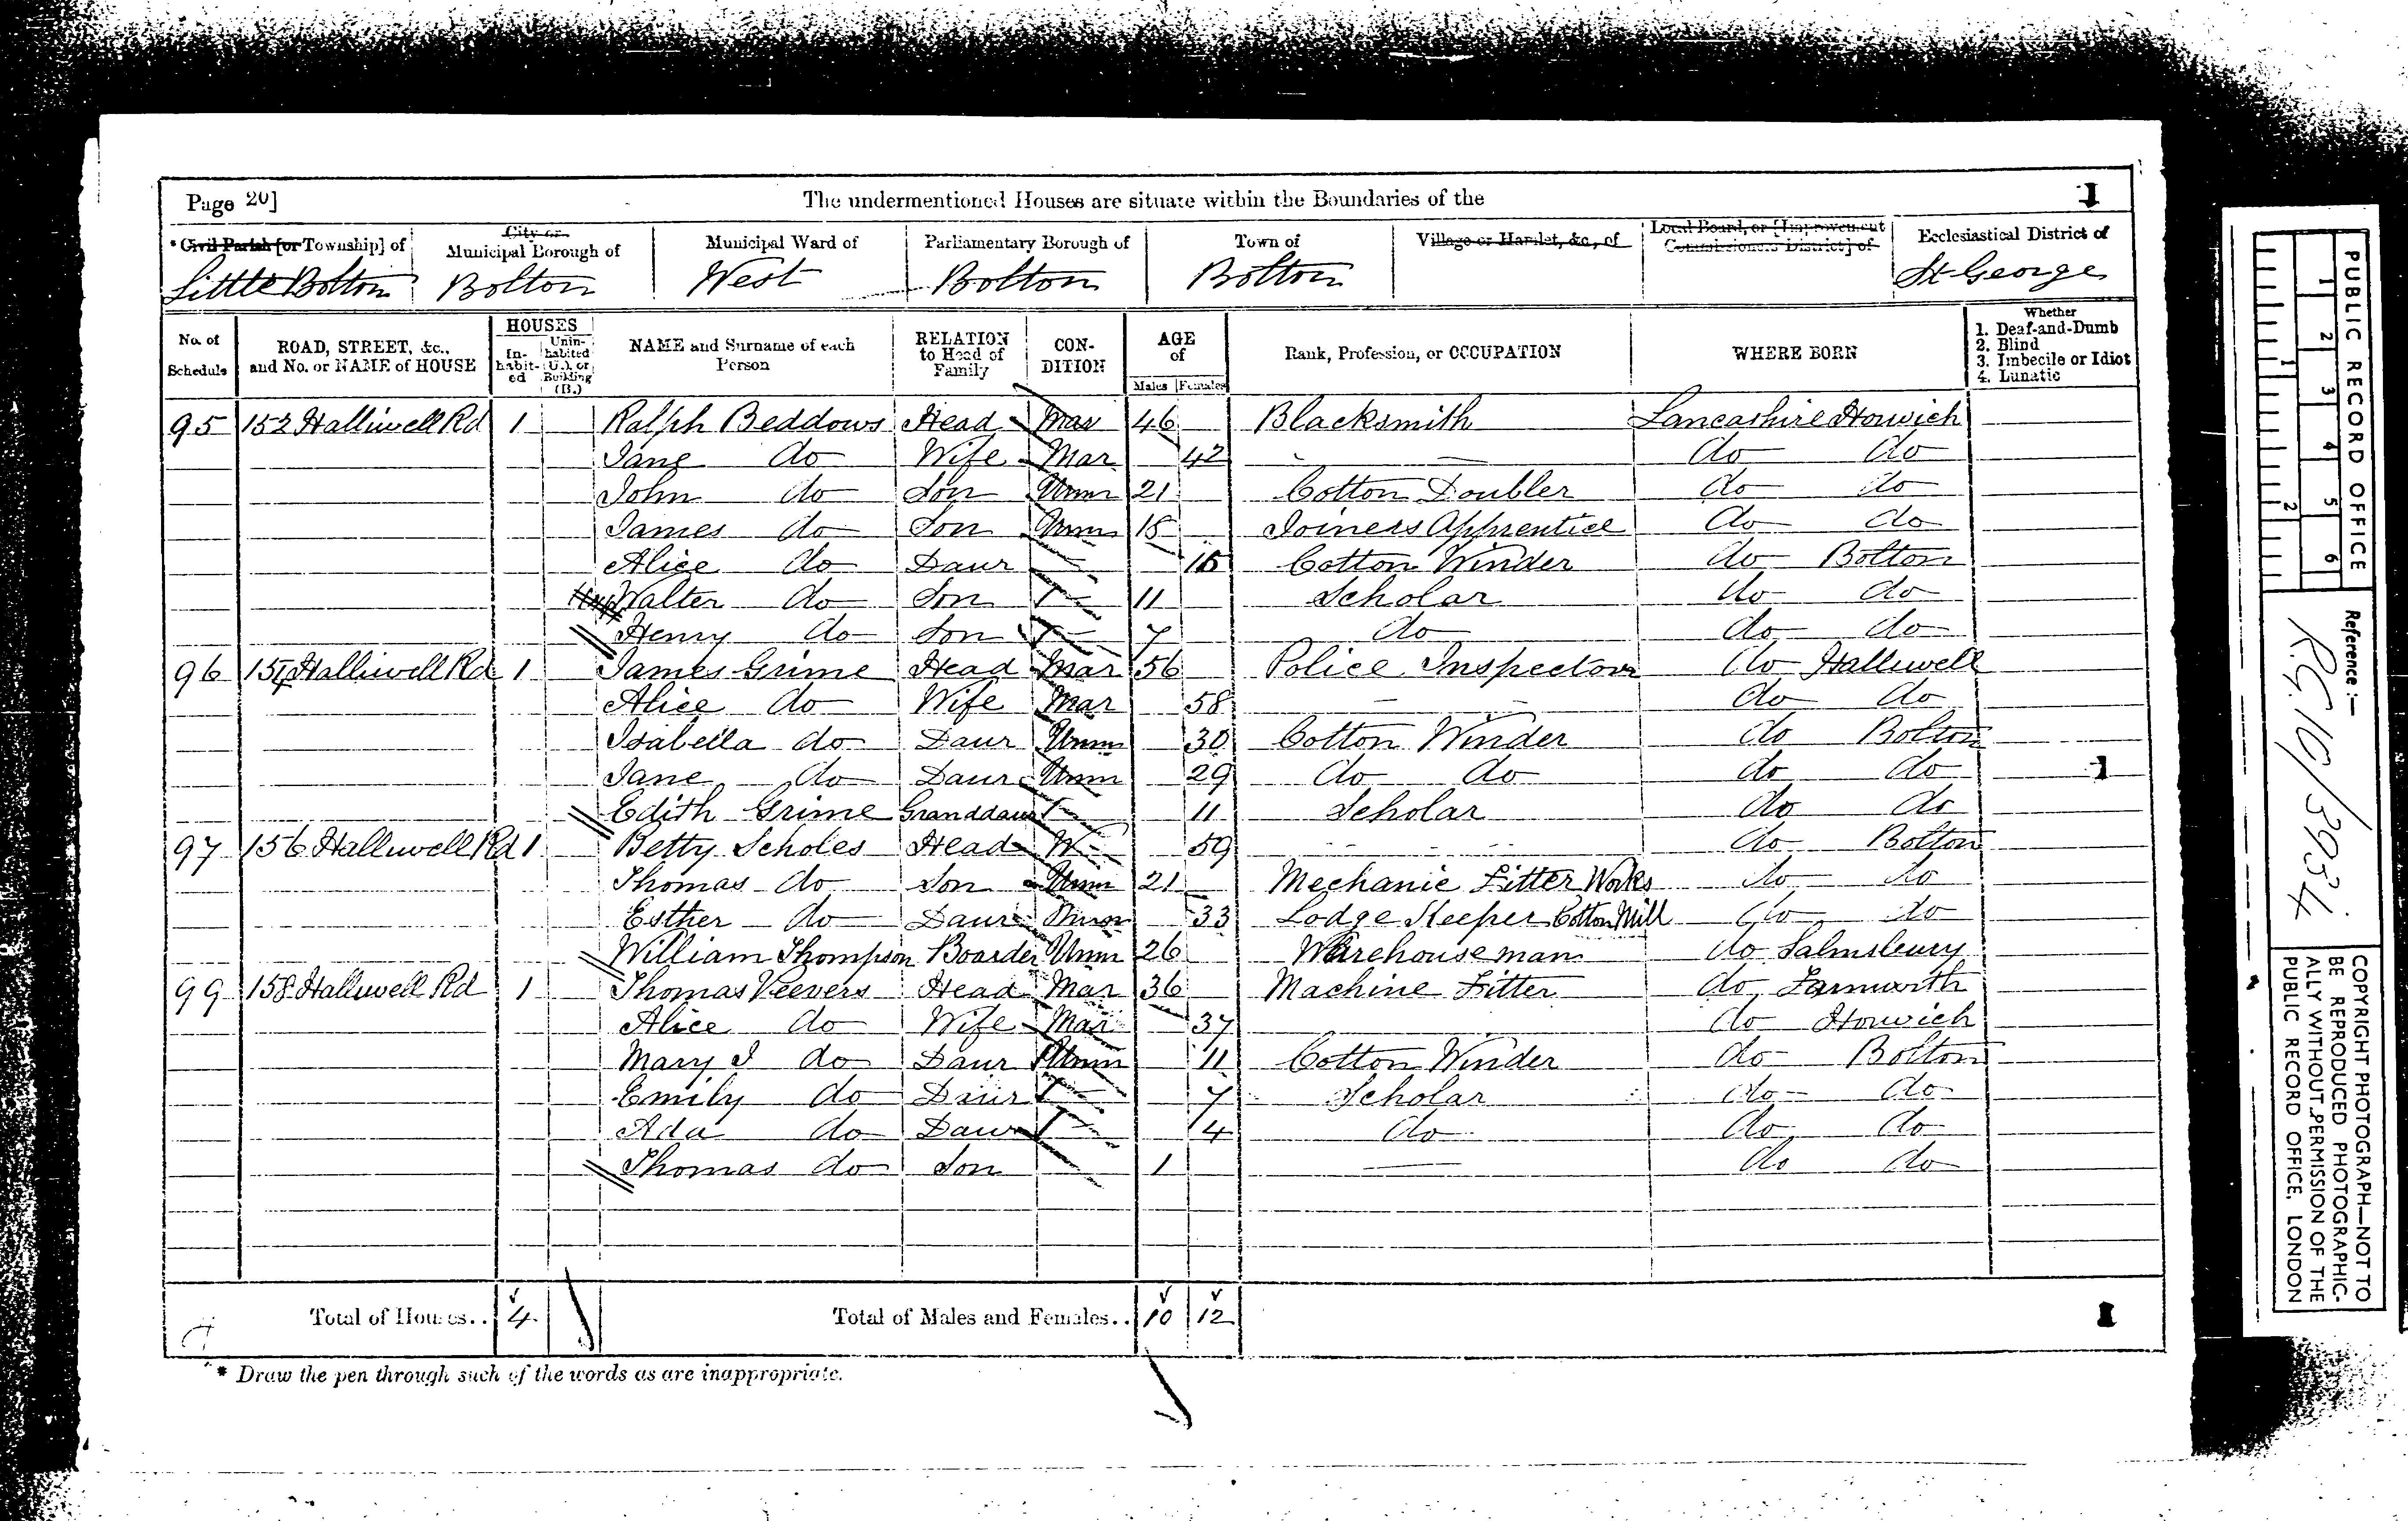 Page 20] The undermentioned Houses are situate within the Boundaries of the
* Civil Parish [or Township] of City or Municipal Borough of Municipal Ward of Parliamentary Borough of Town of Village or Hamlet, &c., of Local Board, or [Improvement Commissioners District] of Ecclesiastical District of
Little Bolton Bolton West Bolton Bolton St George
No. of Schedule ROAD, STREET, &c., and No. or NAME of HOUSE HOUSES Inhabited Uninhabited (U.), or Building (B.) NAME and Surname of each Person RELATION to Head of Family CONDITION AGE of Males Females Rank, Profession, or OCCUPATION WHERE BORN Whether 1. Deaf-and-Dumb 2. Blind 3. Imbecile or Idiot 4. Lunatic
95 152 Halliwell Rd 1 Ralph Beddows Head Mar 46 Blacksmith Lancashire Horwich
Jane do Wife Mar 42 do do
John do Son Unm 21 Cotton Doubler do do
James do Son Unm Joiners Apprentice do do
Alice do Daur Cotton Winder do Bolton
Walter do Son 11 Scholar do do
Henry do Son 7 do do do
96 154 Halliwell Rd 1 James Grime Head Mar 56 Police Inspector do Halliwell
Alice do Wife Mar 58 do do
Isabella do Daur Unm 30 Cotton Winder do Bolton
Jane do Daur Unm 29 do do do do
Edith Grime Granddaur 11 Scholar do do
97 156 Halliwell Rd 1 Betty Scholes Head W 59 do Bolton
Thomas do Son Unm 21 Mechanic Fitter Works do do
Esther do Daur Unm 33 Lodge Keeper Cotton Mill do do
William Thompson Boarder Unm 26 Warehouseman do Salmsbury
99 158 Halliwell Rd 1 Thomas Veevers Head Mar 36 Machine Fitter do Farnworth
Alice do Wife Mar 37 do Horwich
Mary J do Daur Unm 11 Cotton Winder do Bolton
Emily do Daur 7 Scholar do do
Ada do Daur 4 do do do
Thomas do Son 1 do do
Total of Houses.. 4 Total of Males and Females.. 10 12
* Draw the pen through such of the words as are inappropriate.
PUBLIC RECORD OFFICE
1 2 3 4 5 6
1 2
Reference :—
R.G. 10/3934
COPYRIGHT PHOTOGRAPH—NOT TO
BE REPRODUCED PHOTOGRAPHIC-
ALLY WITHOUT PERMISSION OF THE
PUBLIC RECORD OFFICE, LONDON